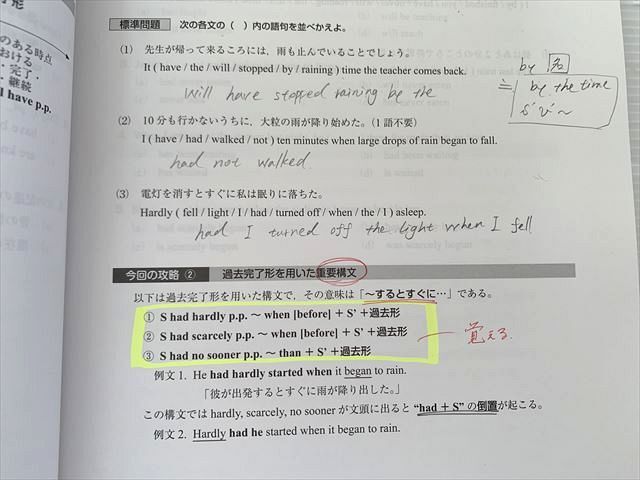 のある時点
おける
完了,
継続
I have p.p.
標準問題 次の各文の( )内の語句を並べかえよ。
(1) 先生が帰って来るころには、雨も止んでいることでしょう。
It ( have / the / will / stopped / by / raining ) time the teacher comes back.
will have stopped raining by the
by 名
≒ by the time
S' V' ~
(2) 10分も行かないうちに、大粒の雨が降り始めた。(1語不要)
I ( have / had / walked / not ) ten minutes when large drops of rain began to fall.
had not walked.
(3) 電灯を消すとすぐに私は眠りに落ちた。
Hardly ( fell / light / I / had / turned off / when / the / I ) asleep.
had I turned off the light when I fell
今回の攻略 ② 過去完了形を用いた重要構文
以下は過去完了形を用いた構文で、その意味は「〜するとすぐに…」である。
① S had hardly p.p. 〜 when [before] + S' +過去形
② S had scarcely p.p. 〜 when [before] + S' +過去形
③ S had no sooner p.p. 〜 than + S' +過去形
覚える.
例文 1. He had hardly started when it began to rain.
「彼が出発するとすぐに雨が降り出した。」
この構文では hardly, scarcely, no sooner が文頭に出ると "had + S" の倒置が起こる。
例文 2. Hardly had he started when it began to rain.